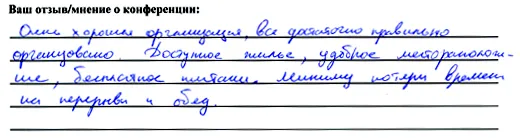 Ваш отзыв/мнение о конференции:
Очень хорошая организация, все достаточно правильно
организовано. Доступное жилье, удобное местоположе-
ние, бесплатное питание. Минимум потери времени
на перерывы и обед.